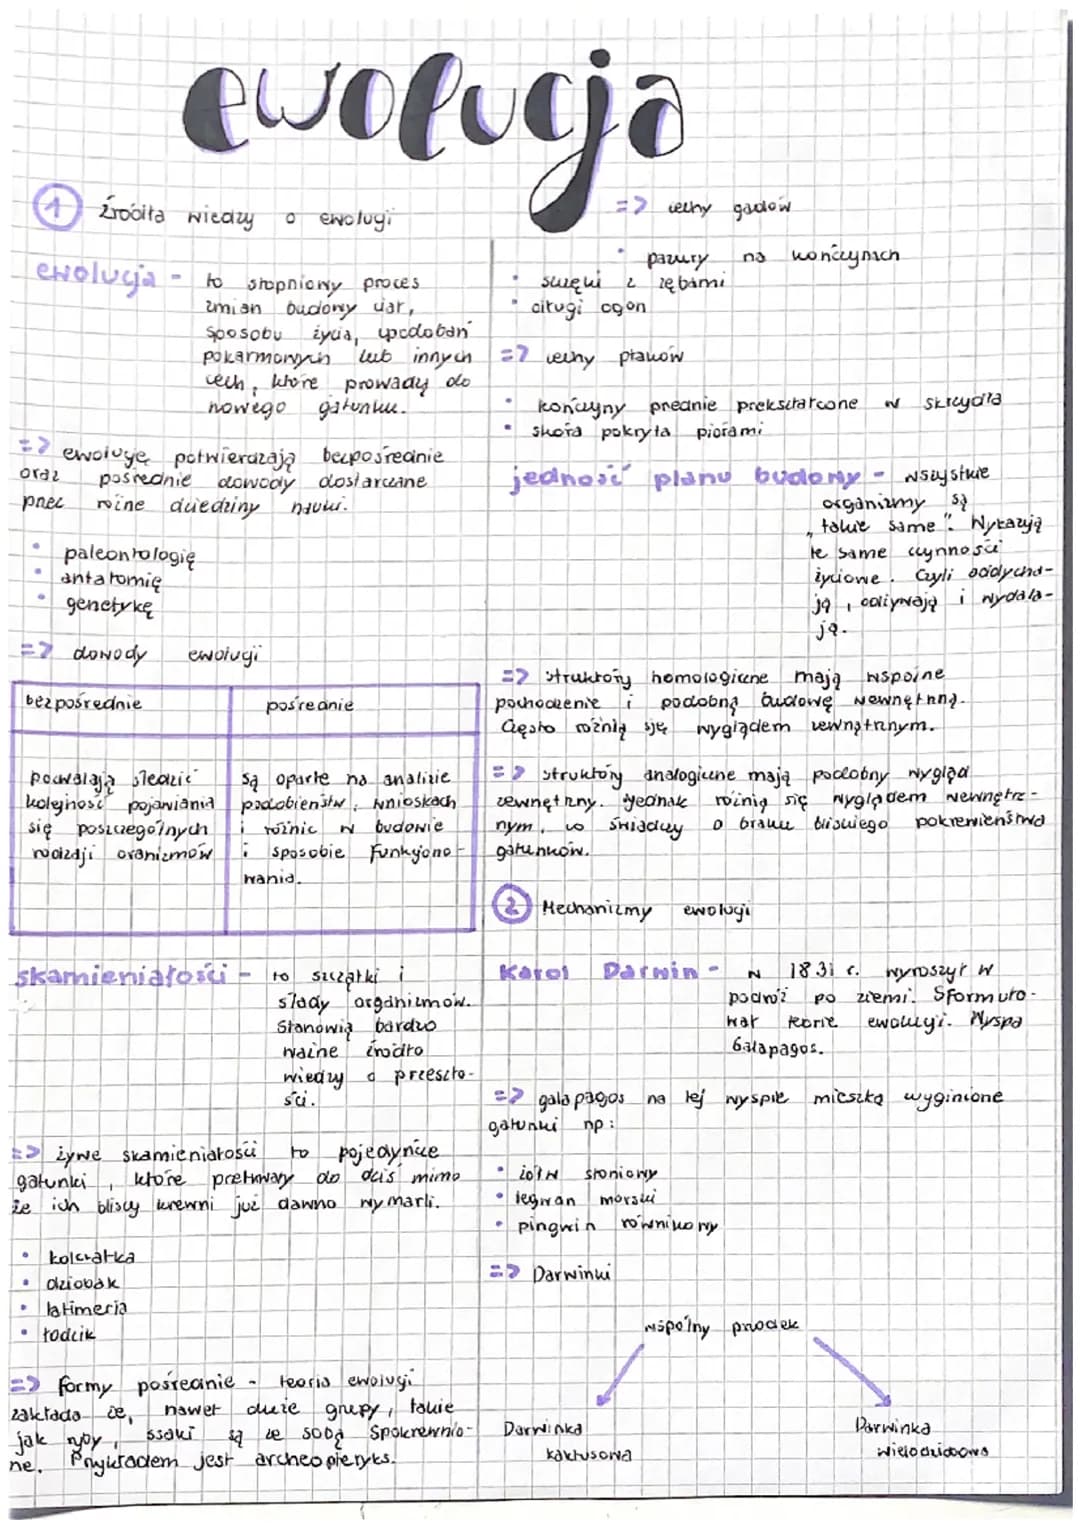 ewolucja
1 Źródła wiedzy o ewolugi
ewolucja - to stopniowy proces
zmian budowy ciał,
sposobu życia, upodobań
pokarmowych lub innych
cech, które prowadzą do
nowego gatunku.
=> ewolucję potwierdzają bezpośrednie
oraz pośrednie dowody dostarczane
przez różne dziedziny nauki.
• paleontologię
• antatomię
• genetykę
=> dowody ewolugi
bezpośrednie
pozwalają śledzić
kolejność pojawiania
się poszczególnych
rodzaji oranizmów
pośrednie
są oparte na analizie
podobieństw, wnioskach
i różnic w budowie
i sposobie funkcjono-
wania.
skamieniałości - to szczątki i
ślady organizmów.
Stanowią bardzo
ważne źródło
wiedzy o przeszło-
ści.
=> żywe skamieniałości to pojedyncze
gatunki, które pretrwały do dziś mimo
że ich bliscy krewni już dawno wymarli.
• kolczatka
• dziobak
• latimeria
• łodzik
=> formy pośrednie - teoria ewolugi
zakłada że, nawet duże grupy, takie
jak ryby, ssaki są ze sobą spokrewnio-
ne. Przykładem jest archeopteryks.
=> cechy gadów
• pazury na kończynach
• szczęki z zębami
• długi ogon
=> cechy ptaków
• kończyny prednie prekształcone w skrzydła
• skóra pokryta piórami
jedność planu budowy - wszystkie
organizmy są
„takie same". Wykazują
te same czynności
życiowe. Czyli oddycha-
ją, odżywają i wydala-
ją.
=> struktóry homologiczne mają wspólne
pochodzenie i podobną budowę wewnętrną.
Często różnią się wyglądem zewnątrznym.
=> struktóry analogiczne mają podobny wygląd
zewnętrzny. Jednak róinią się wyglądem wewnętrz-
nym, co świadczy o braku bliskiego pokrewieństwa
gatunków.
2 Mechanizmy ewolugi
Karol Darwin - w 1831 r. wyroszył w
podróż po ziemi. Sformuło-
wał teorie ewolugi. Wyspa
Galapagos.
=> galapagos na tej wyspie mieszką wyginione
gatunki np:
• żółw słoniowy
• legwan morski
• pingwin równikowy
=> Darwinki
wspólny przodek
Darwinka
kaktusowa
Darwinka
wielodzioowa